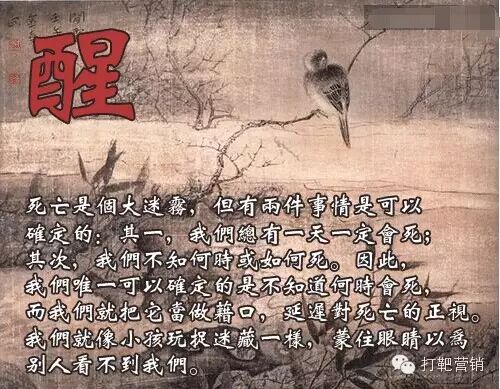 醒
死亡是個大迷霧，但有兩件事情是可以
確定的：其一，我們總有一天一定會死；
其次，我們不知何時或如何死。因此，
我們唯一可以確定的是不知道何時會死，
而我們就把它當做藉口，延遲對死亡的正視。
我們就像小孩玩捉迷藏一樣，蒙住眼睛以為
別人看不到我們。
打靶营销